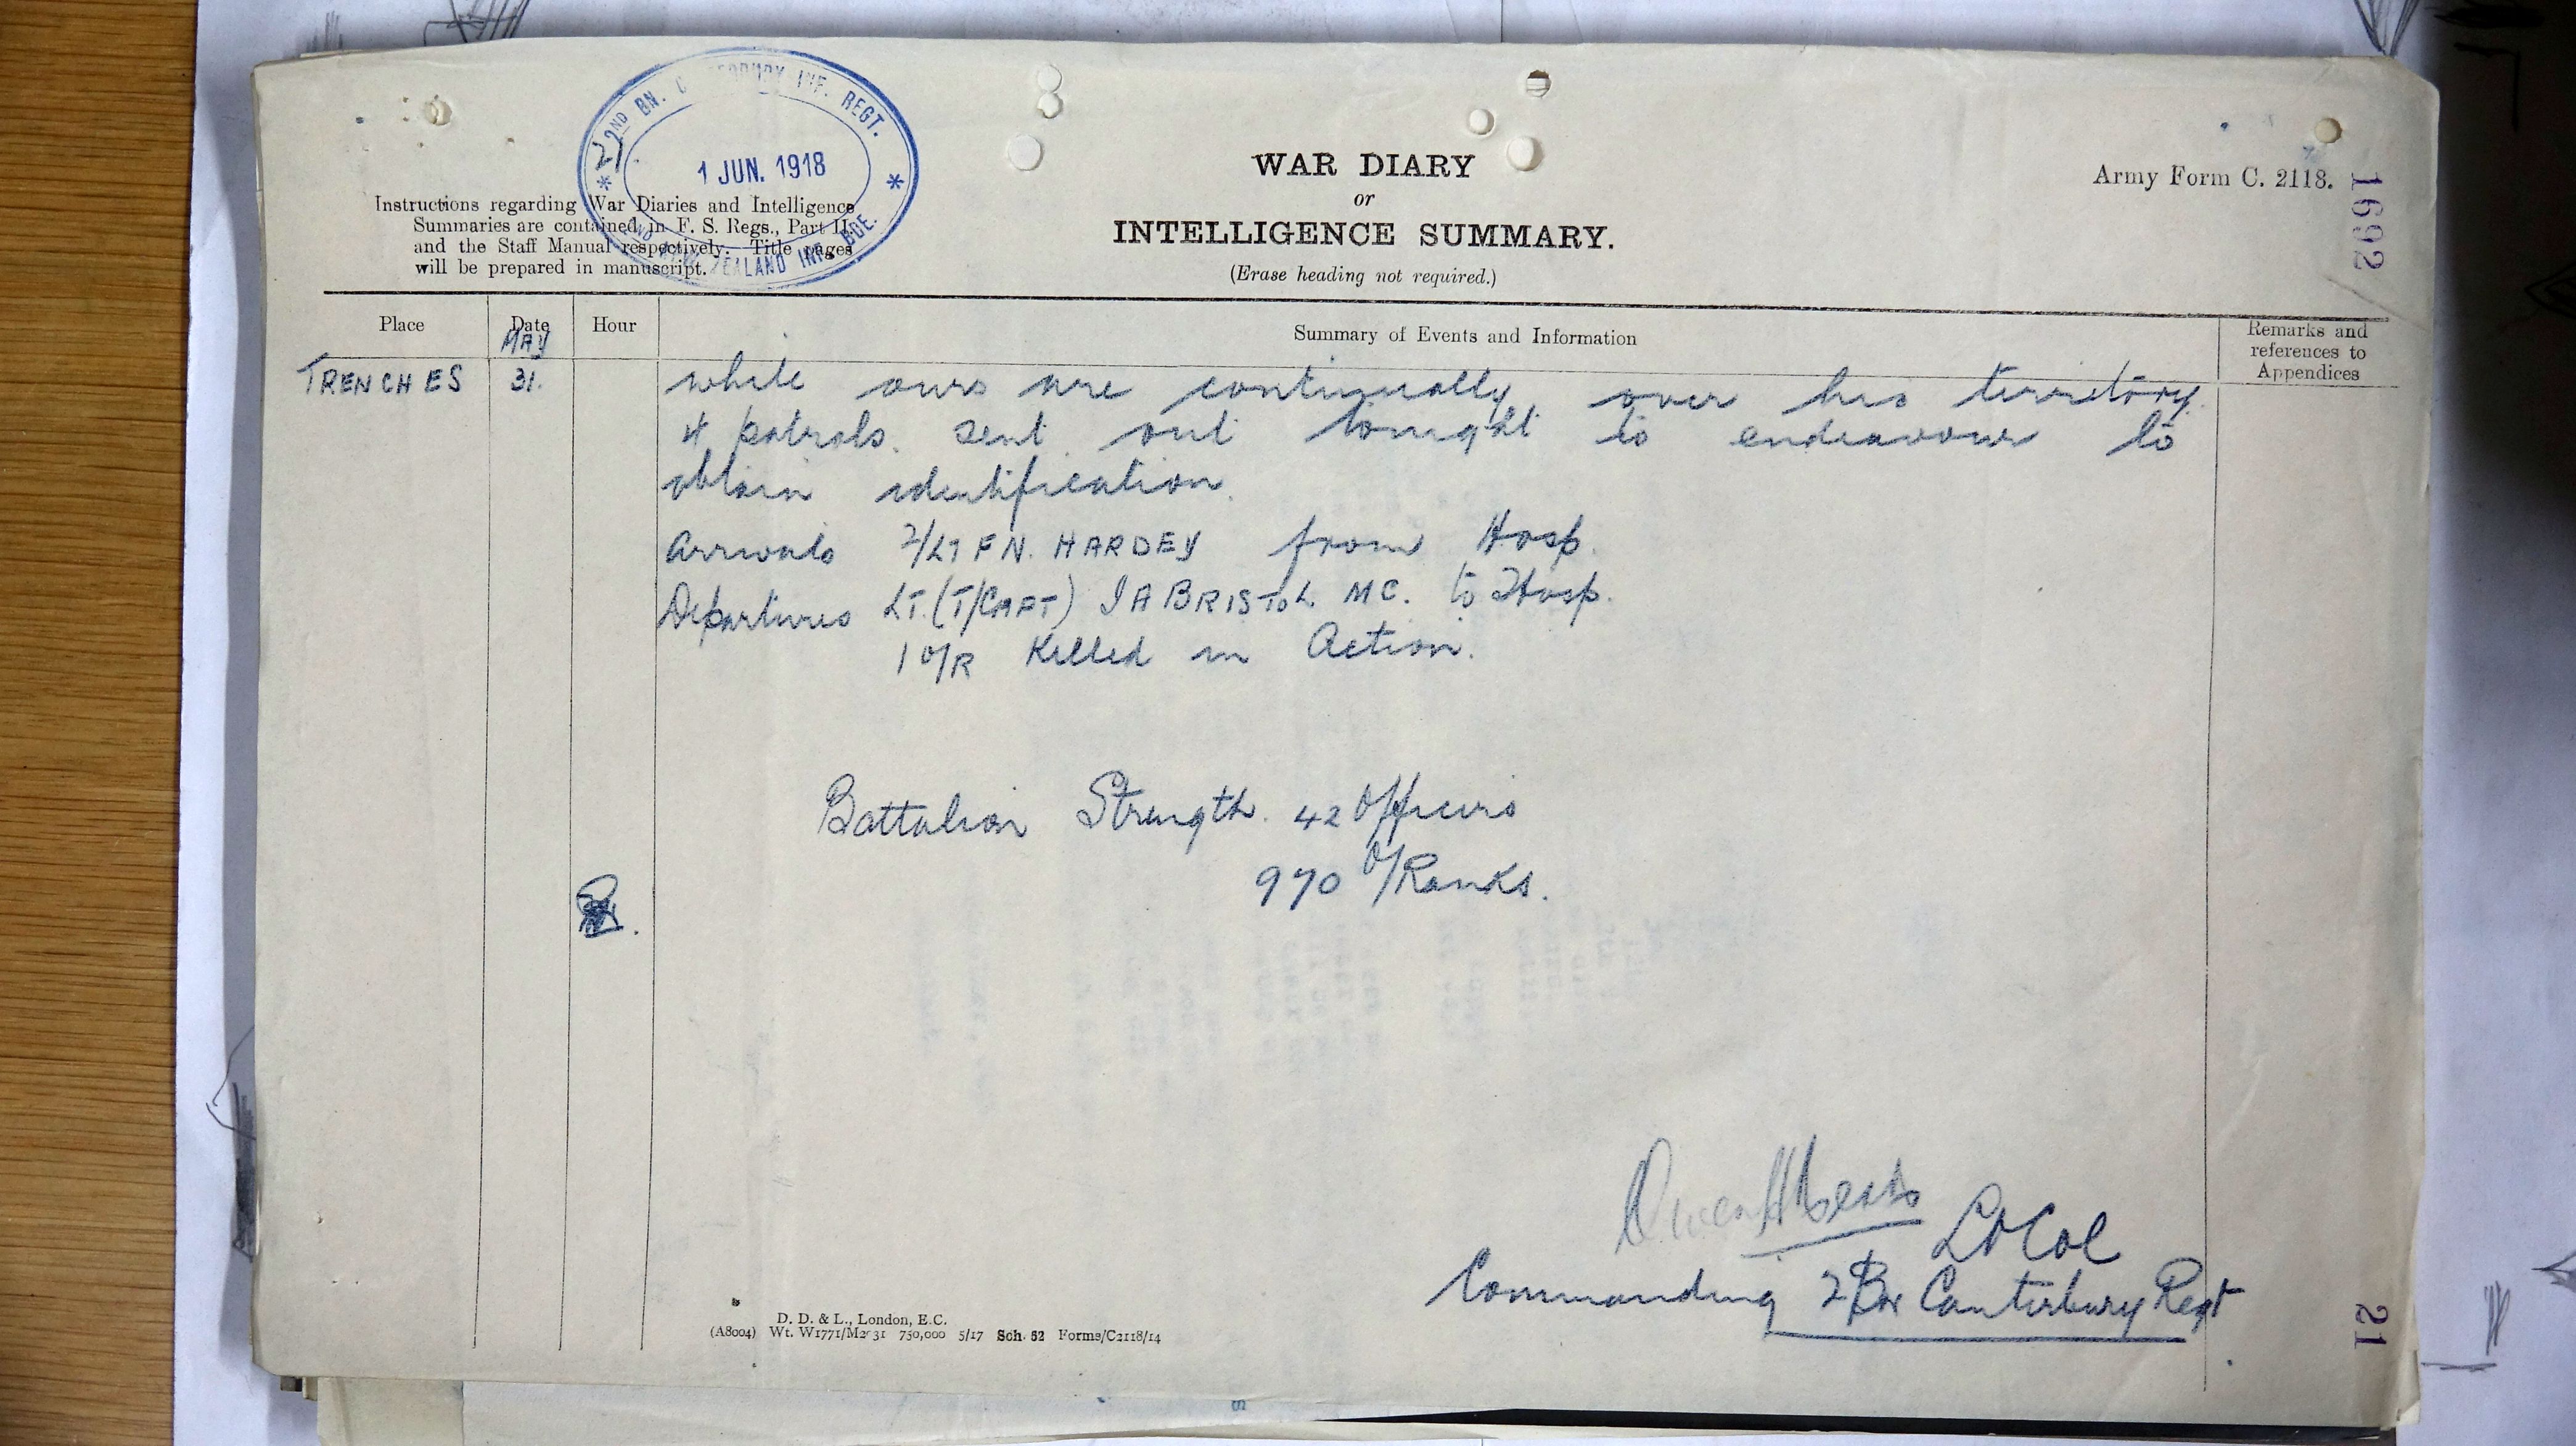 2ND BN. CANTERBURY INF. REGT.
1 JUN. 1918
2ND NEW ZEALAND INF. BDE.
21
Instructions regarding War Diaries and Intelligence
Summaries are contained in F. S. Regs., Part II.
and the Staff Manual respectively. Title pages
will be prepared in manuscript.
WAR DIARY
or
INTELLIGENCE SUMMARY.
(Erase heading not required.)
Army Form C. 2118.
1692
Place
Date
MAY
Hour
Summary of Events and Information
Remarks and
references to
Appendices
TRENCHES 31. while ours are continually over his territory.
4 patrols sent out tonight to endeavour to
obtain identification.
Arrivals 2/LT F N. HARDEY from Hosp.
Departures LT. (T/CAPT) J A BRISTOL MC. to Hosp.
1 O/R Killed in Action.
Battalion Strength. 42 Officers
970 O/Ranks.
Lt Col
Commanding 2 Bn Canterbury Regt
D. D. & L., London, E.C.
(A8004) Wt. W1771/M2031 750,000 5/17 Sch. 52 Forms/C2118/14
21